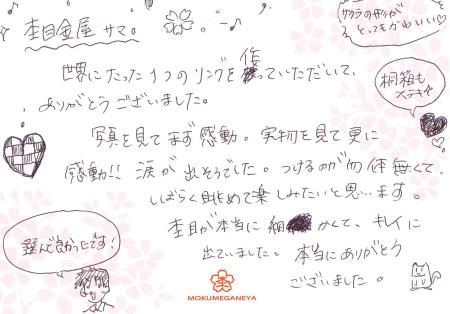 杢目金屋 サマ。
サクラの形が
とってもかわいい
世界にたった1つのリングを作っていただいて、
ありがとうございました。
桐箱も
ステキ
写真を見てまず感動。実物を見て更に
感動!! 涙が出そうでした。つけるのが勿体無くて、
しばらく眺めて楽しみたいと思います。
杢目が本当に細かくて、キレイに
出ていました。本当にありがとう
ございました。
選んで良かったです!
MOKUMEGANEYA